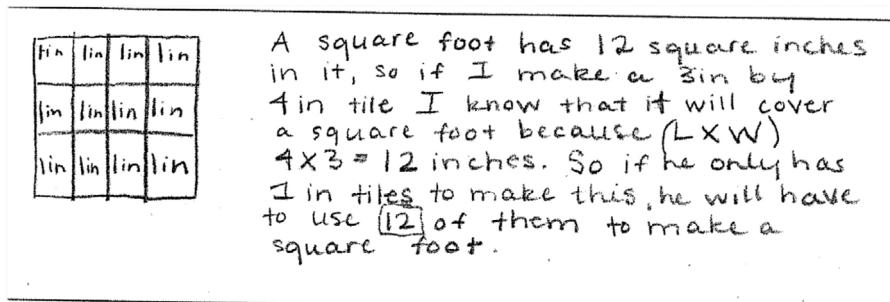 1in 1in 1in 1in
1in 1in 1in 1in
1in 1in 1in 1in
A square foot has 12 square inches
in it, so if I make a 3in by
4in tile I know that it will cover
a square foot because (LXW)
4X3 = 12 inches. So if he only has
1 in tiles to make this, he will have
to use 12 of them to make a
square foot.